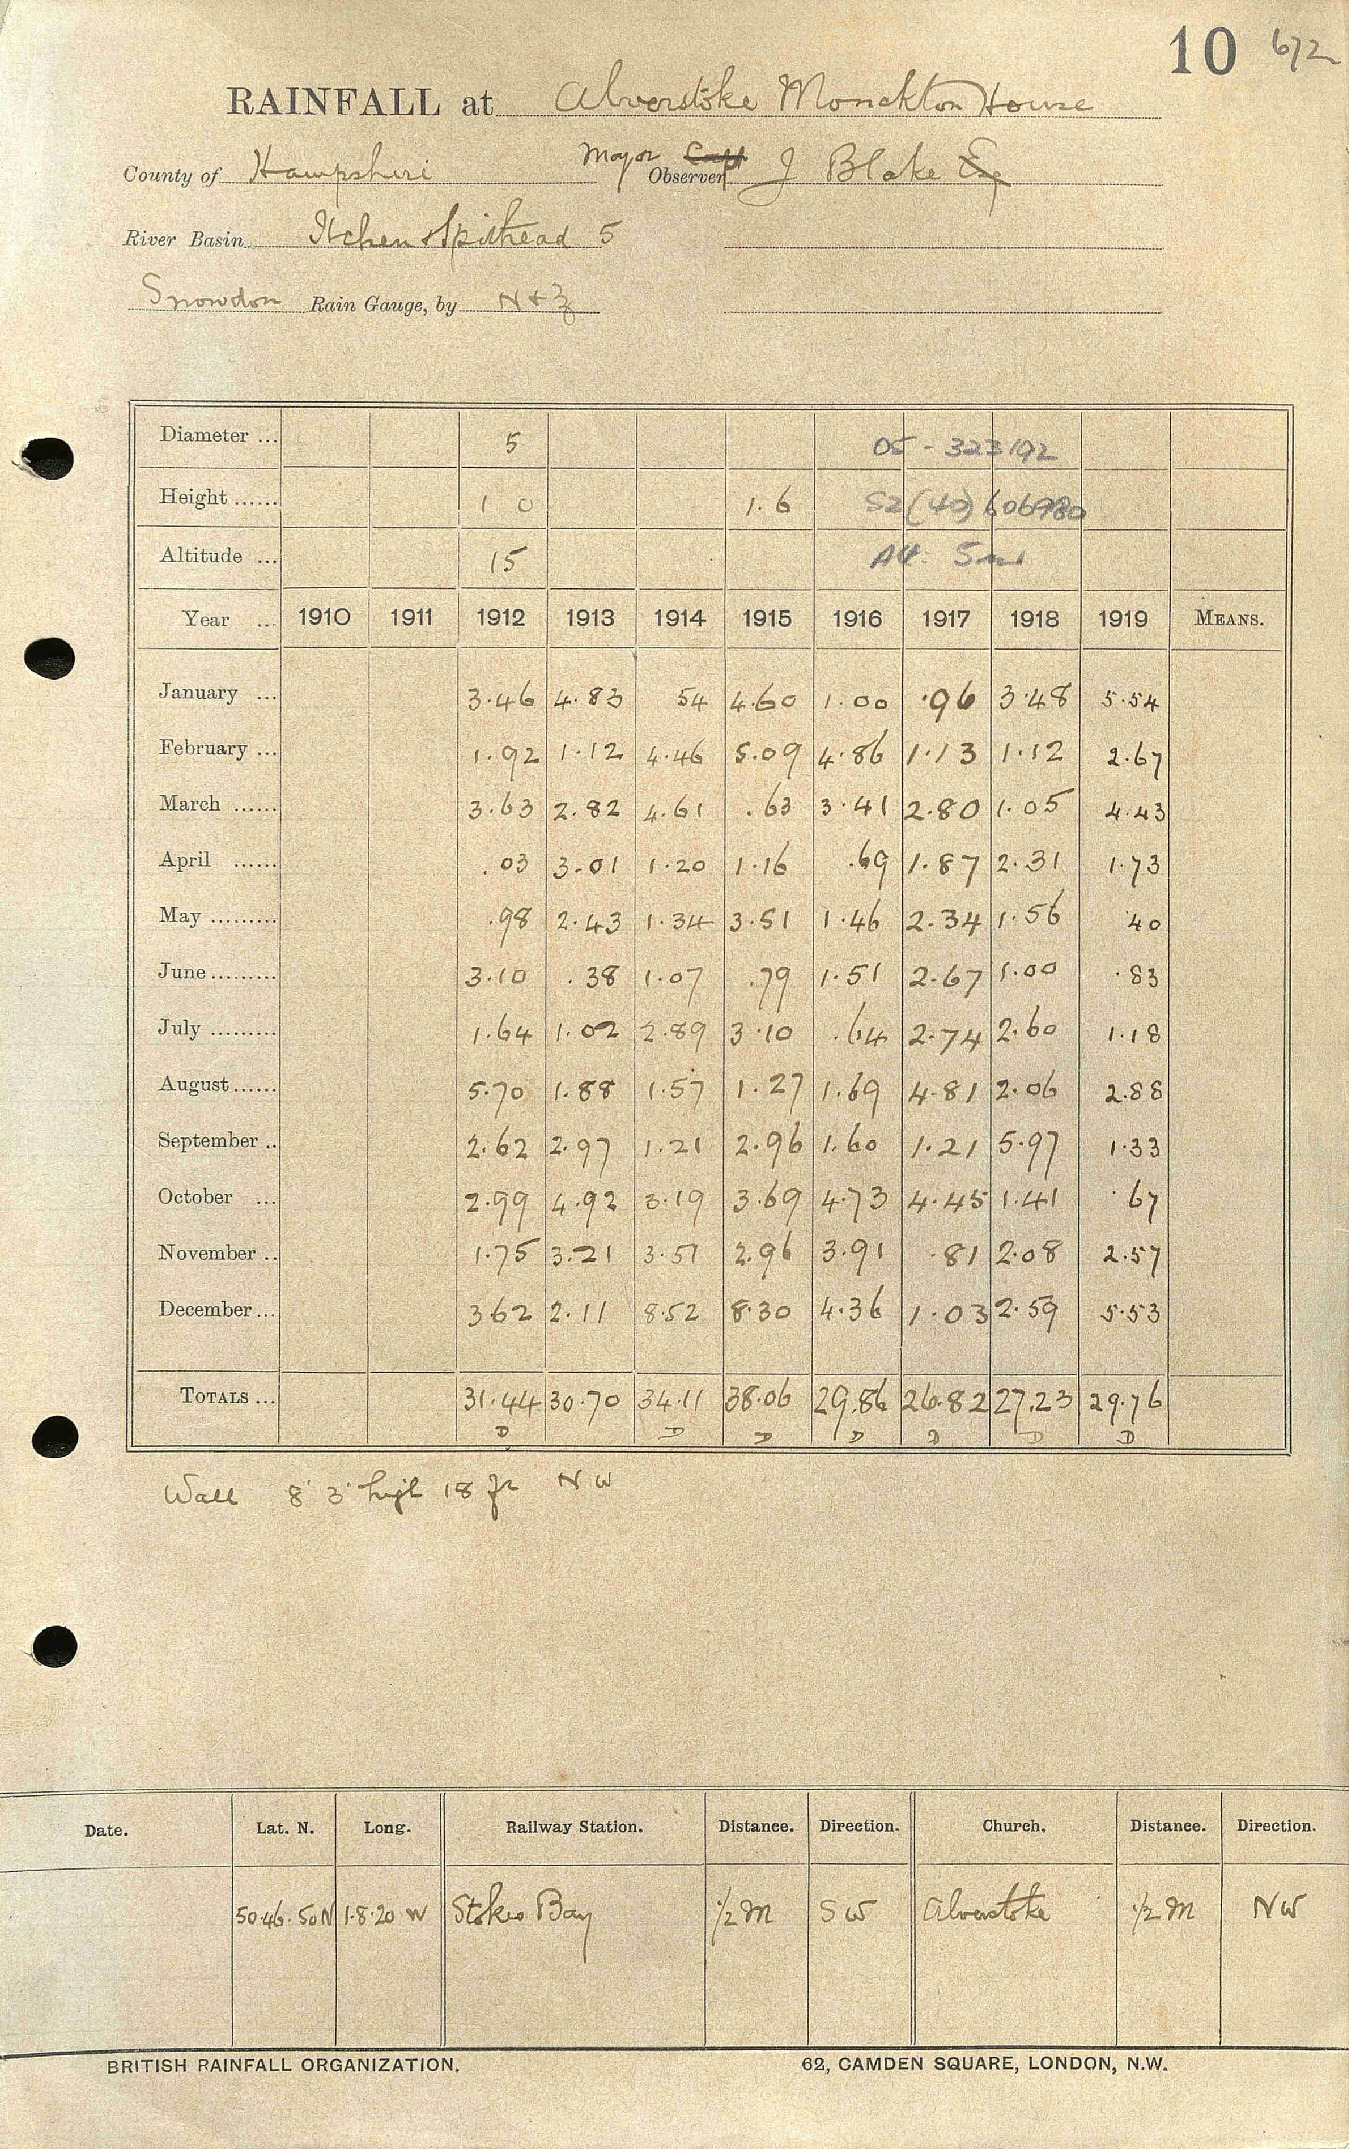 10 672
RAINFALL at Alverstoke Monckton House
County of Hampshire Observer Major Capt J Blake Esq
River Basin Itchen & Spithead 5
Snowdon Rain Gauge, by N & Z
Diameter ... 5 05 - 323192
Height ...... 1 0 1.6 SZ (40) 606980
Altitude ... 15 Alt. 5m
Year ... 1910 1911 1912 1913 1914 1915 1916 1917 1918 1919 MEANS.
January ... 3.46 4.83 54 4.60 1.00 .96 3.48 5.54
February ... 1.92 1.12 4.46 5.09 4.86 1.13 1.12 2.67
March ...... 3.63 2.82 4.61 .63 3.41 2.80 1.05 4.43
April ...... .03 3.01 1.20 1.16 .69 1.87 2.31 1.73
May ......... .98 2.43 1.34 3.51 1.46 2.34 1.56 .40
June ......... 3.10 .38 1.07 .79 1.51 2.67 1.00 .83
July ......... 1.64 1.02 2.89 3.10 .64 2.74 2.60 1.18
August ...... 5.70 1.88 1.57 1.27 1.69 4.81 2.06 2.88
September .. 2.62 2.97 1.21 2.96 1.60 1.21 5.97 1.33
October ... 2.99 4.92 3.19 3.69 4.73 4.45 1.41 .67
November .. 1.75 3.21 3.51 2.96 3.91 .81 2.08 2.57
December ... 3.62 2.11 8.52 8.30 4.36 1.03 2.59 5.53
TOTALS ... 31.44 30.70 34.11 38.06 29.86 26.82 27.23 29.76
D D D D D D D
Wall 8' 3" high 18 ft NW
Date. Lat. N. Long. Railway Station. Distance. Direction. Church. Distance. Direction.
50.46.50N 1.8.20 W Stokes Bay 1/2 M SW Alverstoke 1/2 M NW
BRITISH RAINFALL ORGANIZATION. 62, CAMDEN SQUARE, LONDON, N.W.